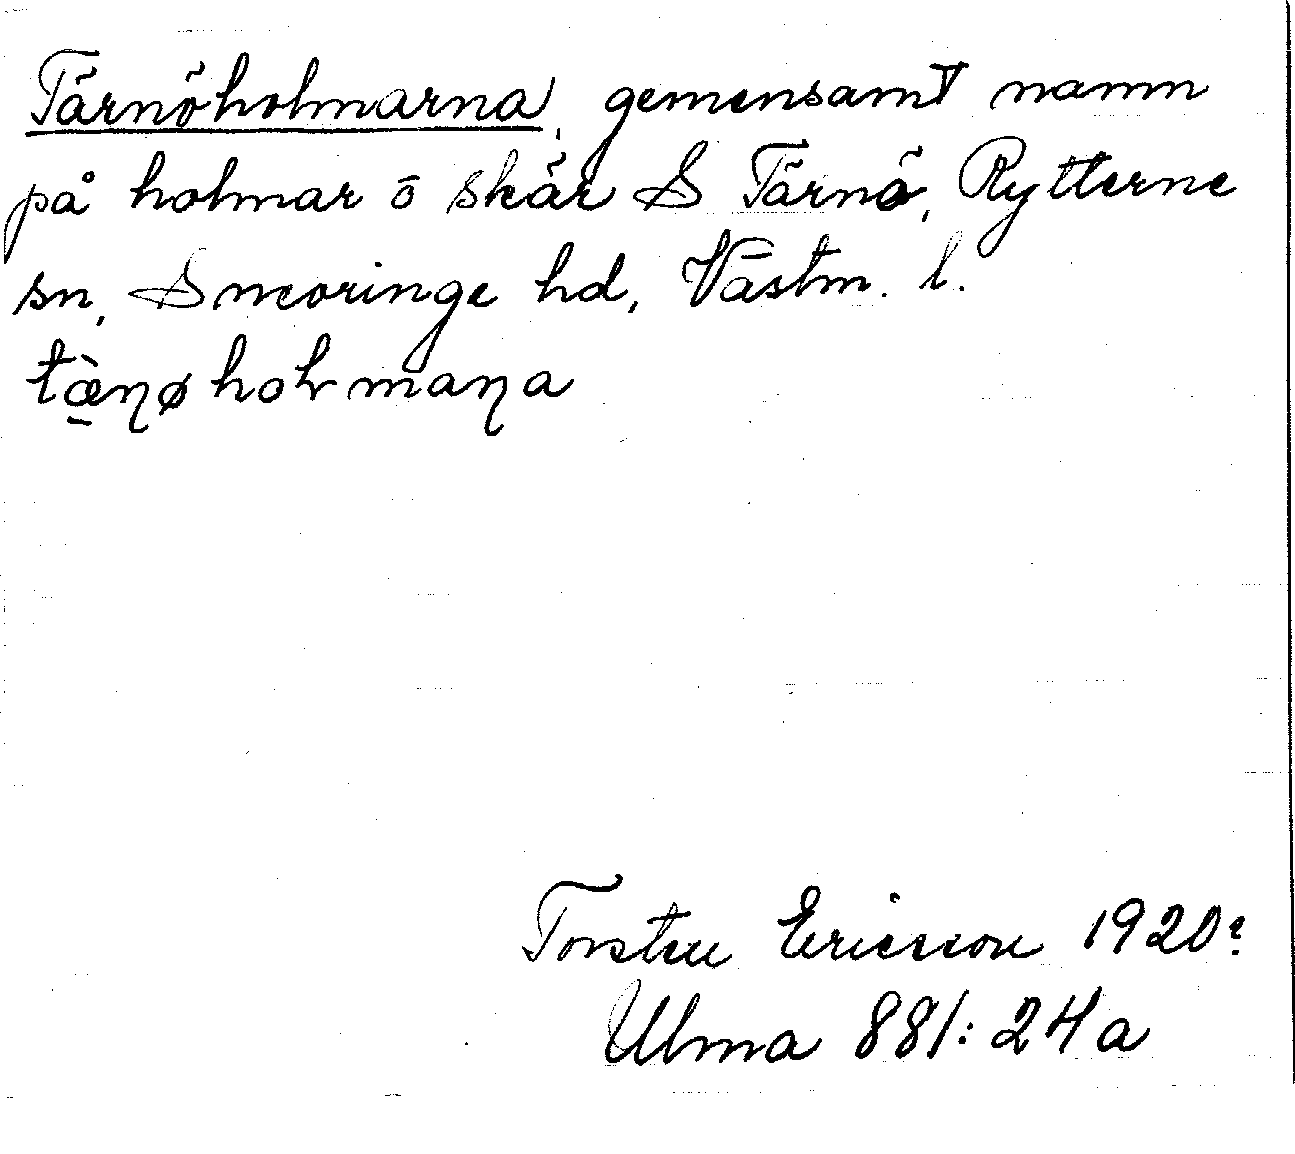 Tärnöholmarna, gemensamt namn
på holmar ō skär S Tärnö, Rytterne
sn, Snevringe hd, Västm. l.
tæ̀ṉøholmaṉa
Torsten Ericsson 1920?
Ulma 881:24a